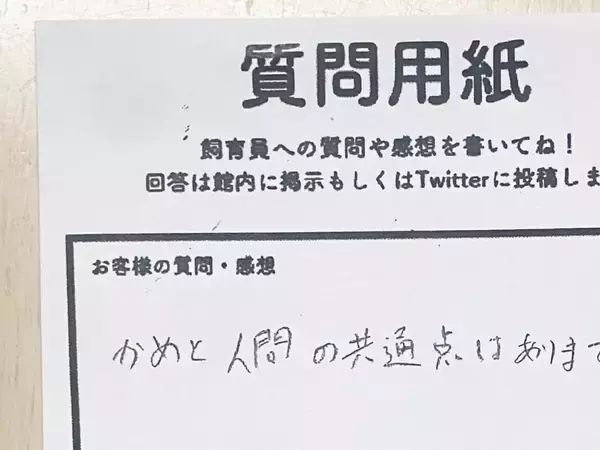 質問用紙
飼育員への質問や感想を書いてね！
回答は館内に掲示もしくはTwitterに投稿しま
お客様の質問・感想
かめと人間の共通点はありま